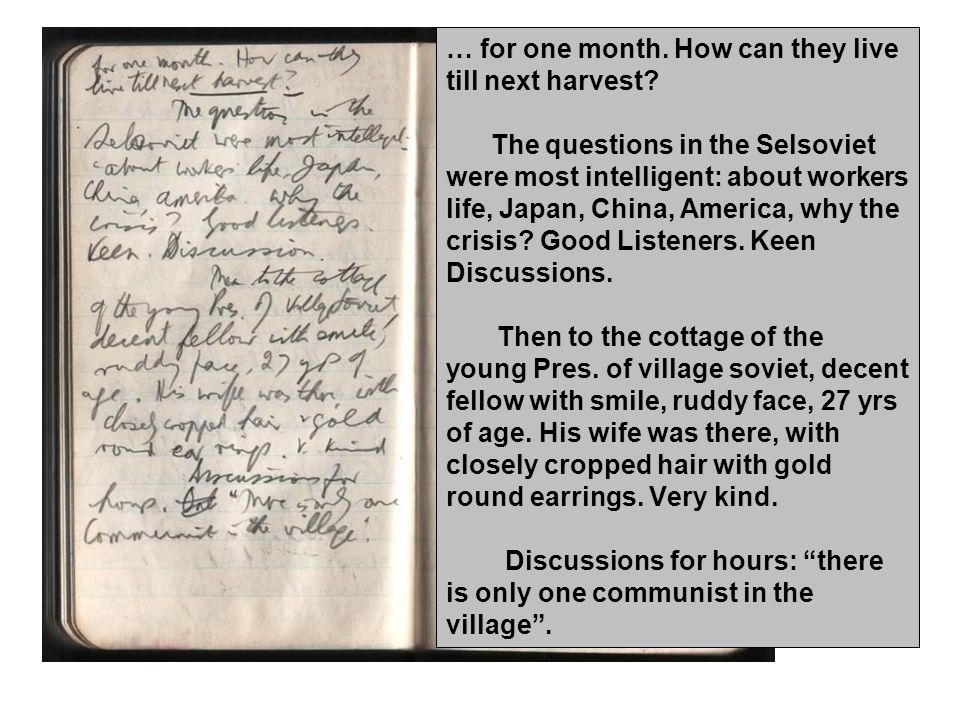 for one month. How can they
live till next harvest?
The questions in the
Selsoviet were most intelligent
about workers life, Japan,
China, America. why the
crisis? Good listeners.
Keen. Discussion.
Then to the cottage
of the young Pres. of Village Soviet,
decent fellow with smile,
ruddy face, 27 yrs of
age. His wife was there with
closely cropped hair & gold
round ear rings. V. kind
Discussions for
hours. "There is only one
Communist in the village".
… for one month. How can they live
till next harvest?
The questions in the Selsoviet
were most intelligent: about workers
life, Japan, China, America, why the
crisis? Good Listeners. Keen
Discussions.
Then to the cottage of the
young Pres. of village soviet, decent
fellow with smile, ruddy face, 27 yrs
of age. His wife was there, with
closely cropped hair with gold
round earrings. Very kind.
Discussions for hours: “there
is only one communist in the
village”.